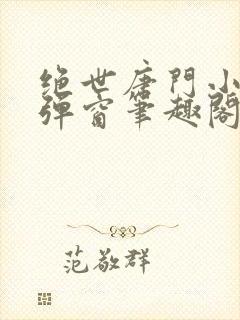 绝世唐門小
弹窗筆趣閣
范敬群